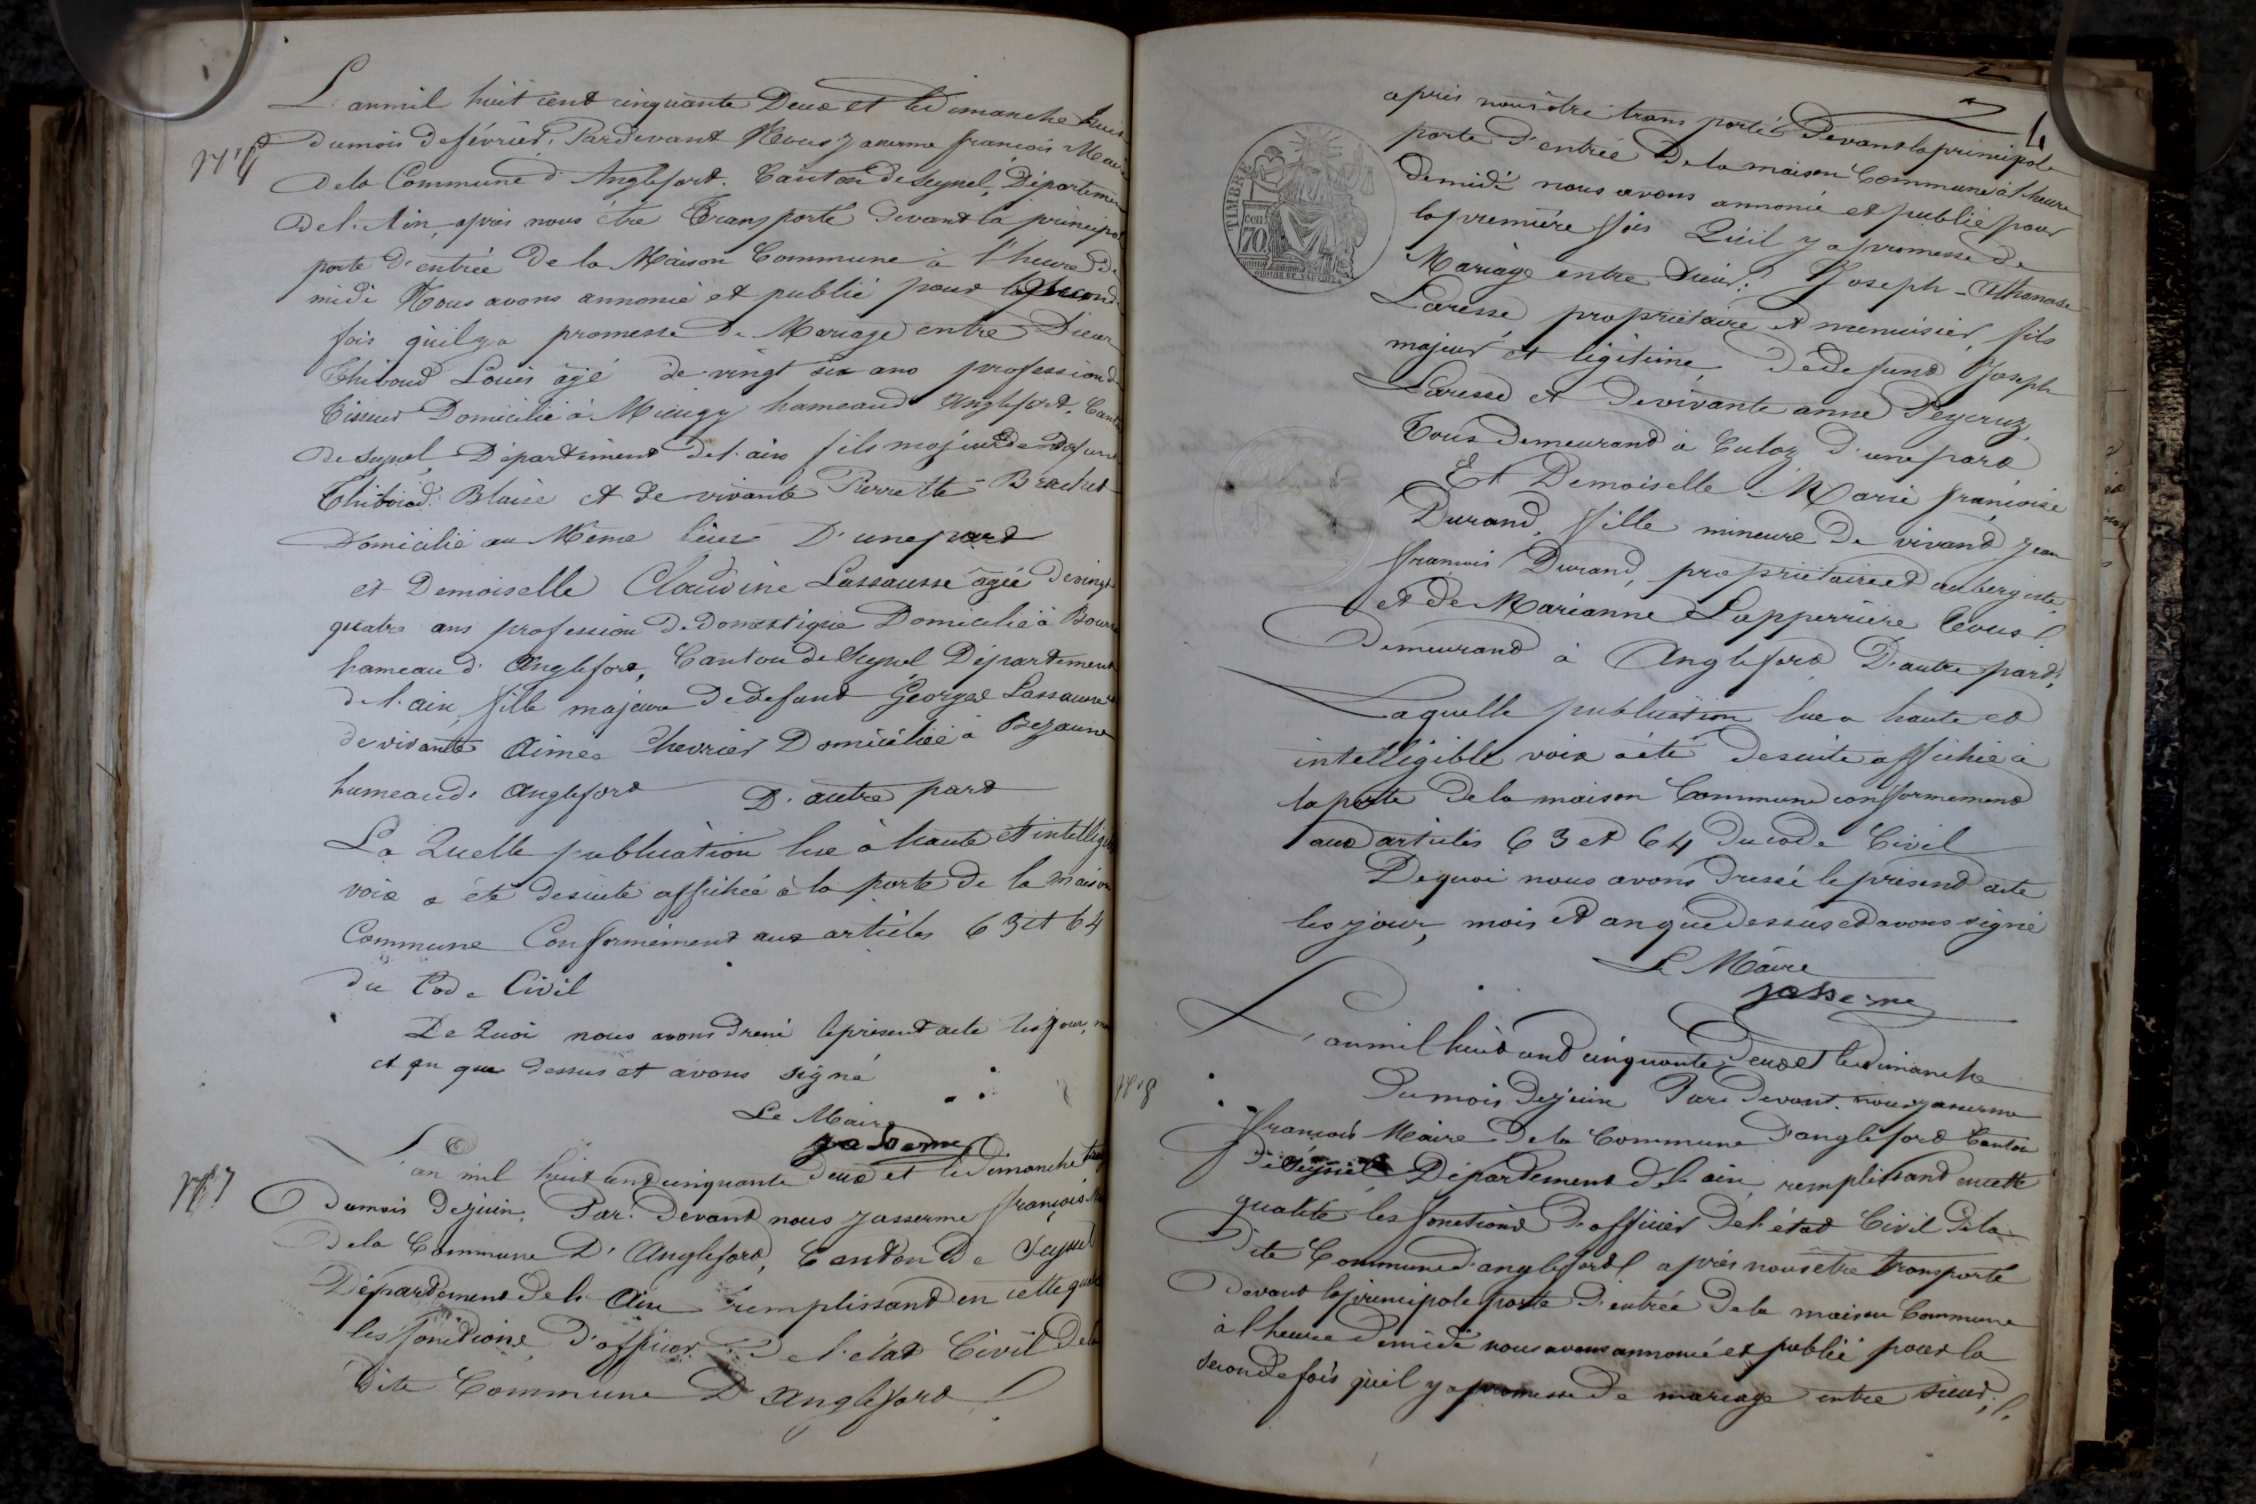 L'an mil huit cent cinquante Deux et le dimanche huit
N° 6
Du mois de février, Pardevant Nous Jasserme françois Maire
De la Commune d'Anglefort. Canton de Seyssel, Département
De l'Ain, après nous être Transporté devant la principale
porte d'entrée De la Maison Commune à l'heure De
midi Nous avons annoncé et publié pour la seconde
fois qu'il y a promesse De Mariage entre Sieur
Thiboud Louis âgé de vingt six ans profession de
Tisseur Domicilié à Mieugy hameau d'Anglefort, Canton
De Seyssel, Département de l'ain fils majeur de Defunt
Thiboud Blaise et de vivante Pierrette Brachet
Domicilié au Même lieu D'une part
et Demoiselle Claudine Lassausse âgée de vingt
quatre ans profession De domestique Domiciliée à
hameau d'Anglefort, Canton de Seyssel Département
de l'ain, fille majeure De defunt George Lassausse et
de vivante Aimée Chevrier Domiciliée à Bezonne
hameau d'Anglefort D'autre part
La Quelle publication lue à haute et intelligible
voix a été de suite affichée à la porte de la maison
Commune Conformément aux articles 63 et 64
du Code Civil
De Quoi nous avons dressé le présent acte les jour, mois
et an que dessus et avons signé
Le Maire
Jasserme
N° 7
L'an mil huit cent cinquante deux et le Dimanche
Du mois De juin, Par Devant nous Jasserme françois Maire
De la Commune D'Anglefort, Canton De Seyssel
Département de l'Ain remplissant en cette qualité
les fonctions D'officier De l'état Civil De la
Dite Commune D'Anglefort
4
après nous être transporté Devant la principale
porte D'entrée De la maison Commune à l'heure
De midi nous avons annoncé et publié pour
la première fois Qu'il y a promesse de
Mariage entre Sieur Joseph-Athanase
Laresse propriétaire et menuisier, fils
majeur et légitime De Defunt Joseph
Laresse et De vivante anne Peycruz,
Tous Demeurant à Culoz D'une part
Et Demoiselle Marie françoise
Durand, fille mineure De vivant Jean
françois Durand, propriétaire et aubergiste
et De Marianne Lapperrière Tous
Demeurant à Anglefort D'autre part,
Laquelle publication lue a haute et
intelligible voix a été De suite affichée à
la porte De la maison Commune conformement
aux articles 63 et 64 Du code Civil
De quoi nous avons dressé le présent acte
les jour, mois et an que dessus et avons signé
Le Maire
Jasserme
TIMBRE
70
N° 8
L'an mil huit cent cinquante Deux et le Dimanche
Du mois De juin Par Devant nous Jasserme
françois Maire De la Commune D'anglefort Canton
De Seyssel Département De l'ain, remplissant en cette
qualité les fonctions D'officier De l'état Civil De la
Dite Commune D'anglefort après nous être transporté
Devant la principale porte D'entrée De la maison Commune
à l'heure De midi nous avons annoncé et publié pour la
seconde fois qu'il y a promesse De mariage entre sieur